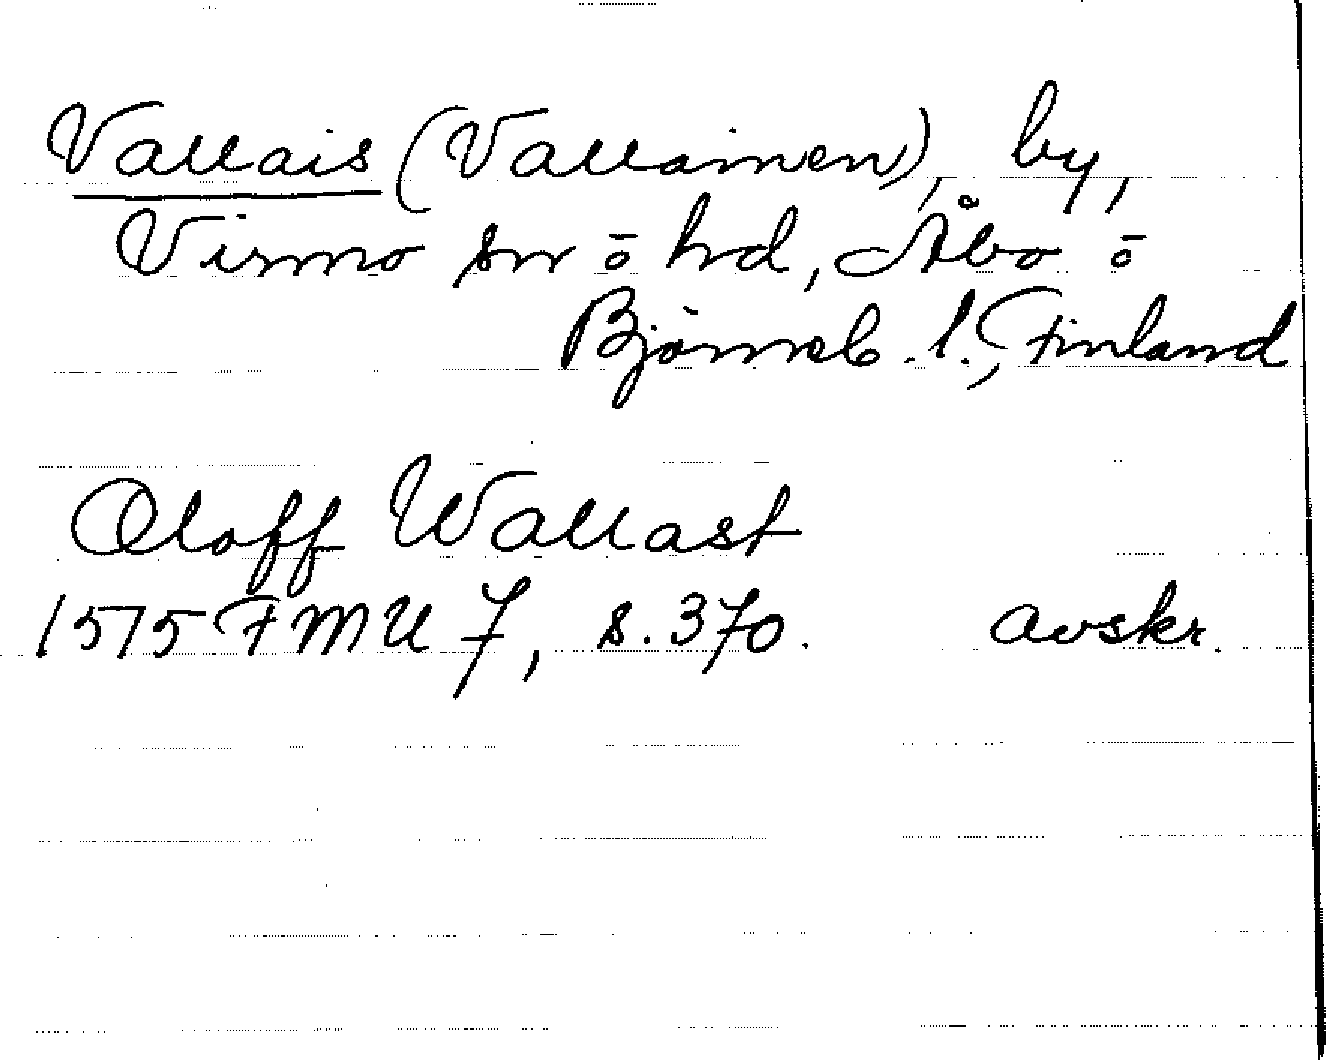 Vallais (Vallainen), by,
Virmo sn ō hd, Åbo ō
Björneb. l., Finland
Oloff Wallast
1575 FMU 7, s. 370. avskr.